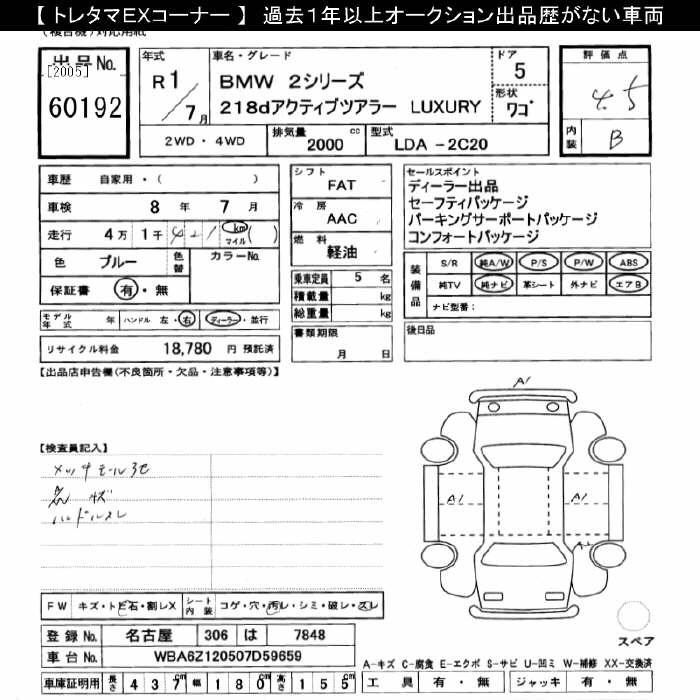 【 トレタマEXコーナー 】 過去1年以上オークション出品歴がない車両
(複合機)対応用紙
出品No.
[2005]
60192
年式
R1/7月
車名・グレード
BMW 2シリーズ
218dアクティブツアラー LUXURY
ドア
5
形状
ワゴ
評価点
4.5
内装
B
2WD・4WD
排気量
2000 cc
型式
LDA -2C20
車歴 自家用・( )
車検 8 年 7 月
走行 4 万 1 千 421 km マイル ( )
色 ブルー 色替 カラーNo.
保証書 有・無
シフト
FAT
冷房
AAC
燃料
軽油
セールスポイント
ディーラー出品
セーフティパッケージ
パーキングサーポートパッケージ
コンフォートパッケージ
装備品
S/R 純A/W P/S P/W ABS
純TV 純ナビ 革シート 外ナビ エアB
ナビ型番:
乗車定員 5 名
積載量 kg
総重量 kg
モデル年式 年 ハンドル 左・右 ディーラー・並行
書類期限
月 日
後日品
リサイクル料金 18,780 円 預託済
【出品店申告欄(不良箇所・欠品・注意事項等)】
A1
【検査員記入】
メッキモール
ハンドルスレ
A1 A1
FW キズ・トビ石・割レX シート内装 コゲ・穴・汚レ・シミ・破レ・スレ
登録No. 名古屋 306 は 7848
車台No. WBA6Z120507D59659
スペア
A-キズ C-腐食 E-エクボ S-サビ U-凹ミ W-補修 XX-交換済
車庫証明用 長さ 437 幅 180 高さ 155
工具 有・無 ジャッキ 有・無